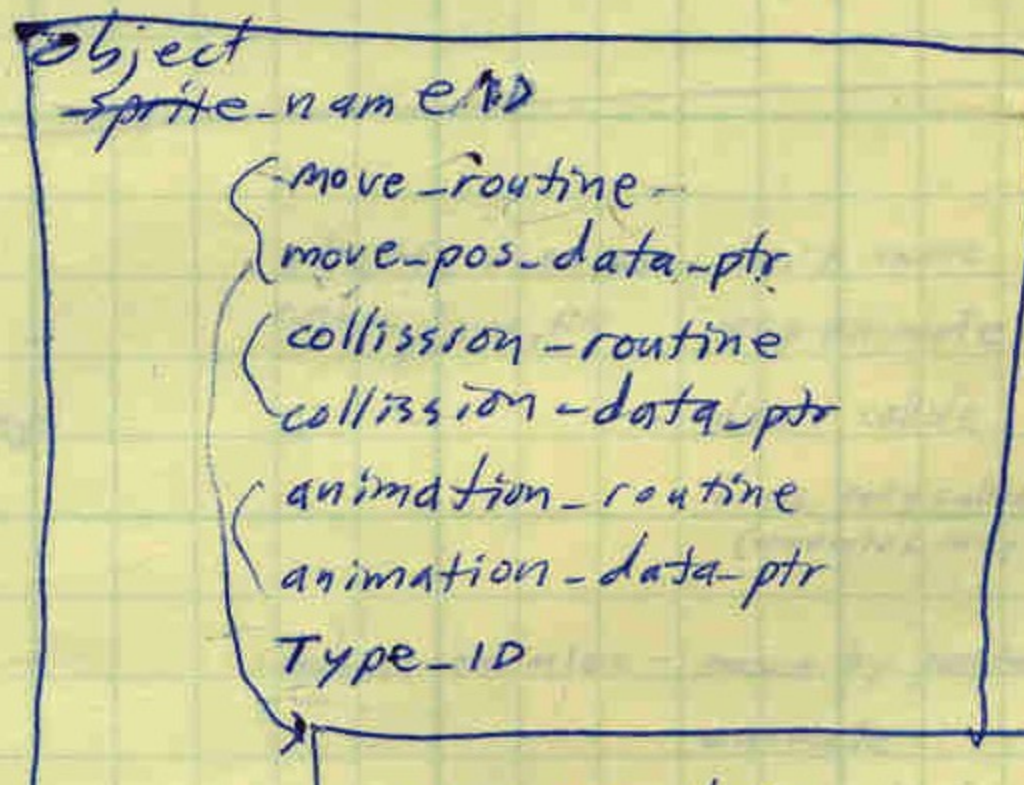 object
sprite_name/ID
move_routine
move_pos_data_ptr
collission_routine
collission_data_ptr
animation_routine
animation_data_ptr
Type_ID